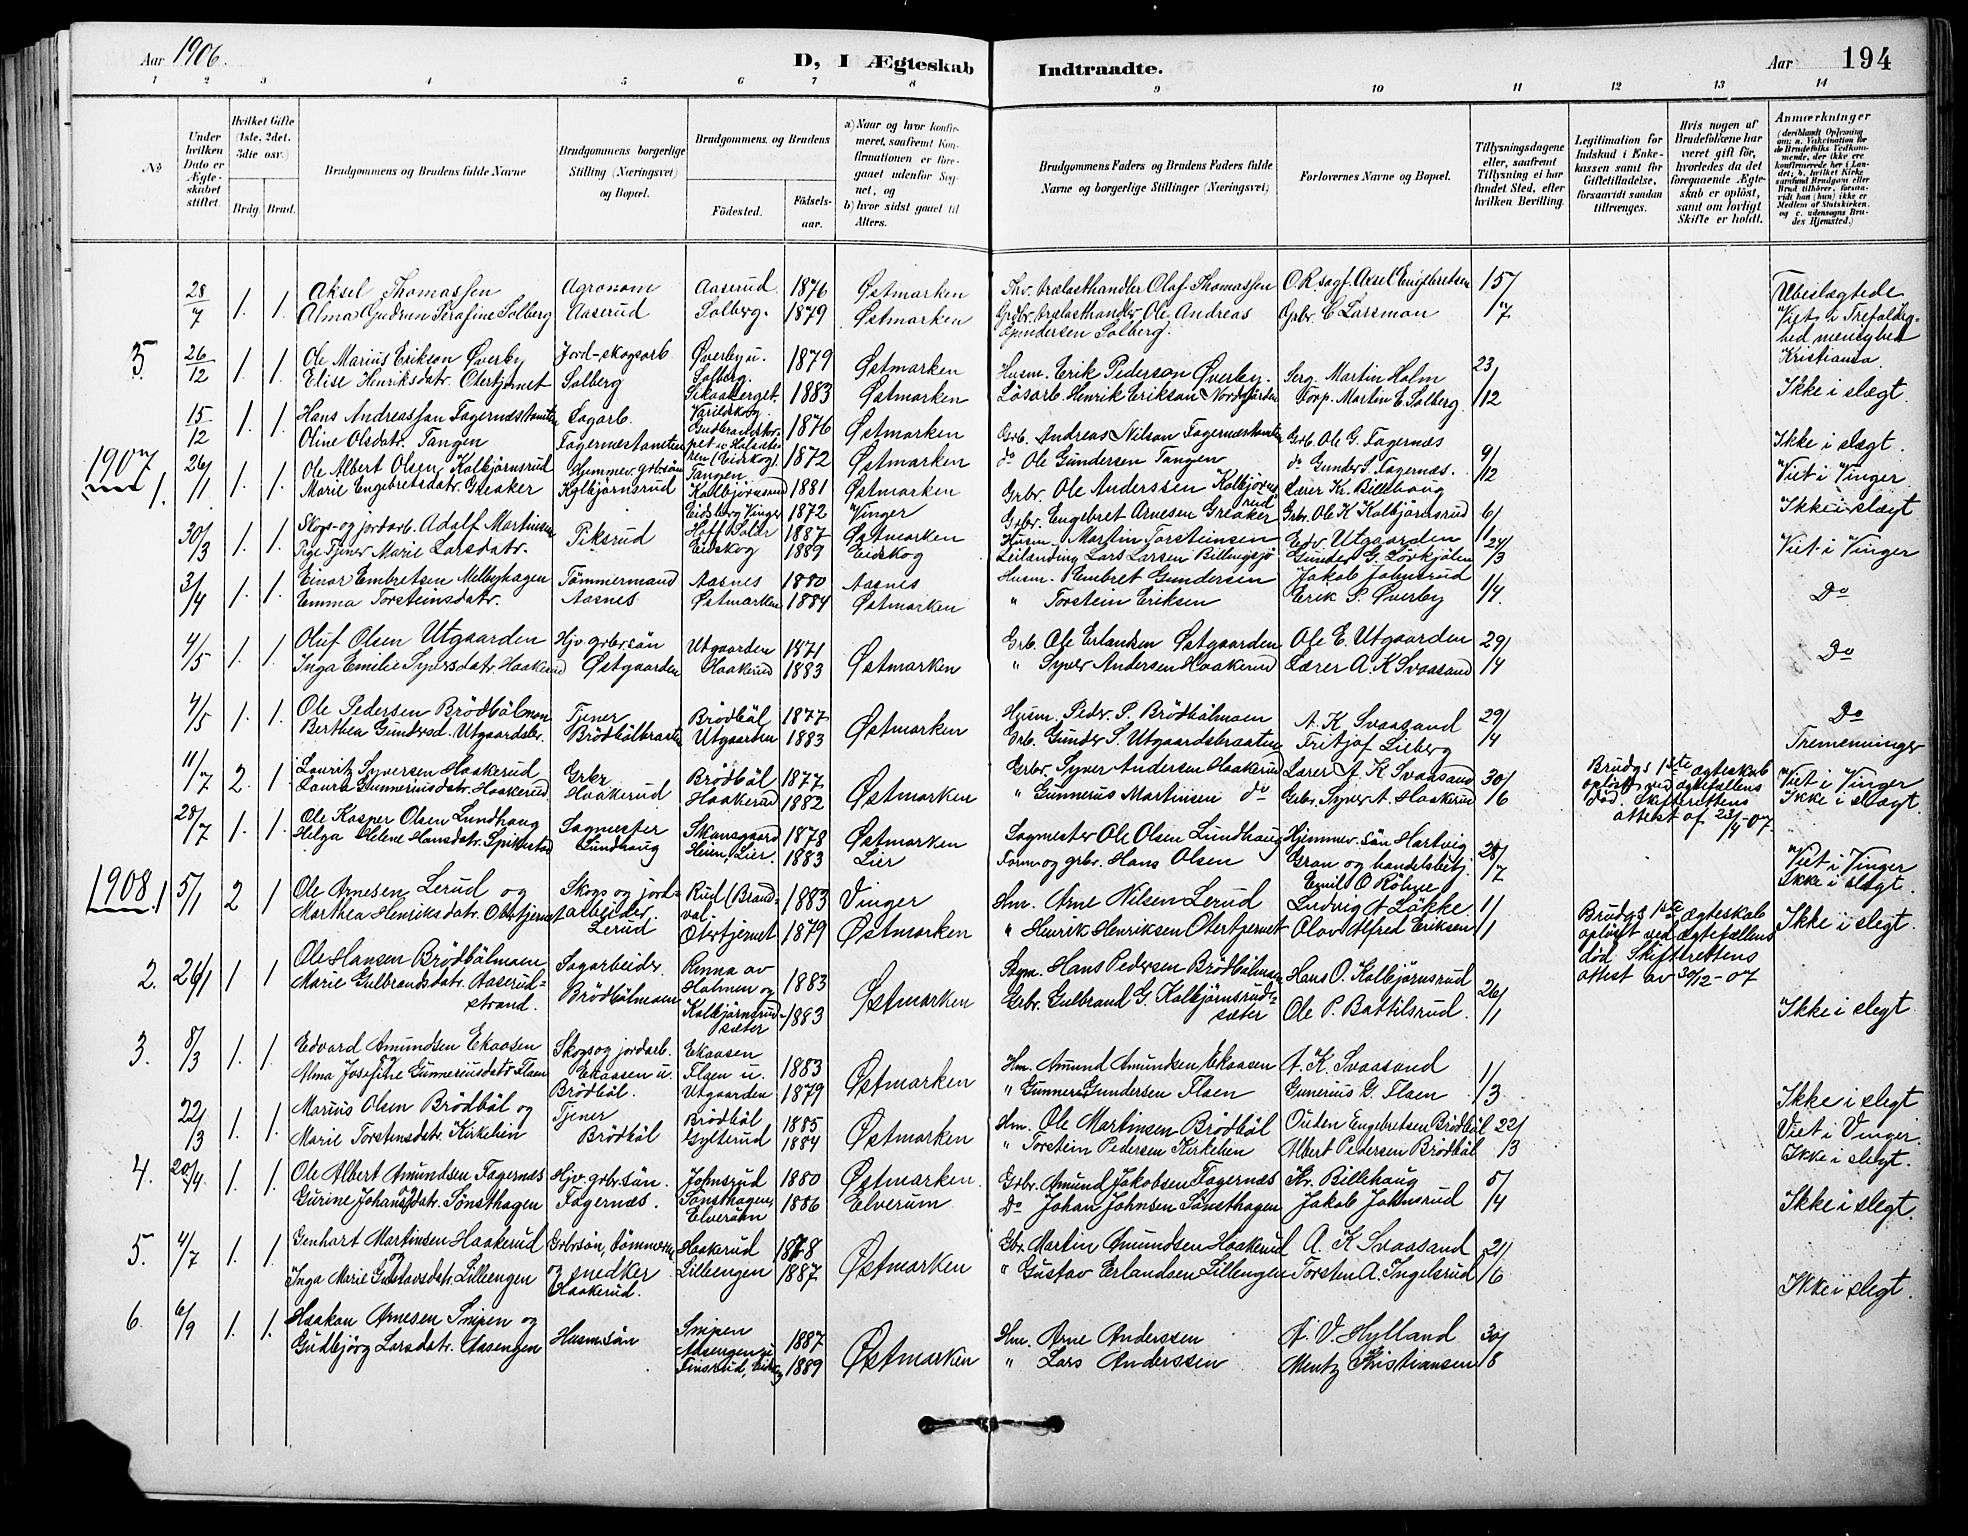 Aar 1906.
D, I Ægteskab
Indtraadte.
Aar
194
1 2 3 4 5 6 7 8 9 10 11 12 13 14
No
Under hvilken Dato er Ægteskabet stiftet.
Hvilket Gifte (1ste, 2det, 3die osv.)
Brdg. Brud.
Brudgommens og Brudens fulde Navne
Brudgommens borgerlige Stilling (Næringsvei) og Bopæl.
Brudgommens og Brudens
Fødested.
Fødselsaar.
a) Naar og hvor konfirmeret, saafremt Konfirmationen er foregaaet udenfor Sognet, og
b) hvor sidst gaaet til Alters.
Brudgommens Faders og Brudens Faders fulde Navne og borgerlige Stillinger (Næringsvei)
Forlovernes Navne og Bopæl.
Tillysningsdagene eller, saafremt Tillysning ei har fundet Sted, efter hvilken Bevilling.
Legitimation for Indskud i Enkekassen samt for Giftetilladelse, forsaavidt saadan tiltrænges.
Hvis nogen af Brudefolkene har været gift før, hvorledes da det foregaaende Ægteskab er opløst, samt om lovligt Skifte er holdt.
Anmærkninger
28/7 1. 1. Aksel Thomassen Agronom Aaserud 1876 Østmarken
Alma Gudrun Serafine Solberg Aaserud Solberg. 1879 Østmarken
trælasthandler Olaf Thomassen Aksel Engebretsen 15/7 Ubeslægtede
trælasthandler Ole Andreas Grbr. C Larsmon Viet i Trefoldig-
Gundersen Solberg. hed menighed
Kristiania
5. 26/12 1. 1. Ole Marius Erikson Øverby Jord-skogsarb. Øverby u. Solberg. 1879 Østmarken
Elise Henriksdatr. Otertjernet Solberg Sikaaberget 1883 Østmarken
Husm. Erik Pederson Øverby. Serg. Martin Holm 23/12
Løsarb. Henrik Erikson Nordgarden Martin E. Solberg. Ikke i slægt.
15/12 1. 1. Hans Andreassen Fagernæstomten Sagarb. 1876 Østmarken
Oline Olsdatr. Tangen Fagernæstomten (Eidskog). Tangen 1872 Østmarken
Grb. Andreas Nilson Fagernæstomten Grb. Ole G. Fagernæs 9/12
do Ole Gundersen Tangen do Gunder S. Fagernæs. Ikke i slægt.
1907
1. 26/1 1. 1. Ole Albert Olsen Kolbjørnsrud Hjemmev. grbrsøn Kolbjørnsrud 1881 Østmarken
Marie Engebretsdatr. Greaker Kolbjørnsrud Eidsberg Vinger 1872 Vinger
Grbr. Ole Anderssen Kolbjørnsrud Lærer Kr. Billehaug 6/1 Viet i Vinger
Grbr. Engebret Arnesen Greaker Grbr. Ole K Kolbjørnsrud Ikke i slægt
30/3 1. 1. Skogs- og jordarb. Adolf Martinsen Piksrud Hoff Solør 1887 Østmarken
Pige Tjener Marie Larsdatr. Eidskog 1889 Eidskog
Husm. Martin Torsteinsen Edv. Utgaarden 24/3
Leilending Lars Larsen Billingsjø Gunder G. Løvkjølen Viet i Vinger
3/4 1. 1. Einar Embretsen Melbyhagen Tømmermand Aasnes 1880 Aasnes
Emma Torsteinsdatr. Aasnes Østmarken 1884 Østmarken
Husm. Embret Gundersen Jakob Johnsrud 1/4.
" Torstein Eriksen Erik P. Øverby Do
4/5 1. 1. Oluf Olsen Utgaarden Hjv. grbrsøn Utgaarden 1871
Inga Emilie Syversdatr. Haakerud Østgaarden Haakerud 1883 Østmarken
Grb. Ole Erlandsen Østgaarden Ole E. Utgaarden 29/4
" Syver Andersen Haakerud Lærer A. K Svaasand Do
4/5 1. 1. Ole Pedersen Brödbölmoen Tjener Brödböl 1877
Berthea Gundersd. Utgaardsbr. Brödbölbraaten Utgaarden 1883 Østmarken
Husm. Pedr. P. Brödbölmoen A. K Svaasand 29/4 Do
Grb. Gunder S. Utgaardsbraaten Fritjof Lieberg Tremenninger
11/7 2. 1 Lauritz Syversen Haakerud Grbr Brödböl 1877
Laura Gunneriusdatr. Haakerud Haakerud Haakerud 1882 Østmarken
Grbr. Syver Andersen Haakerud Lærer A. K Svaasand 30/6
" Gunnerus Martinsen do Grbr. Syver A. Haakerud
Brudgs 1ste ægteskab opløst ved ægtefællens død. Skifterettens attest af 23/4-07.
Viet i Vinger
Ikke i slægt
28/7 1. 1. Ole Kasper Olsen Lundhaug Sagmester Skansgaard 1878 Østmarken
Helga Helene Hansdatr. Spikkestad Lundhaug Heien, Lier. 1883 Lier
Sagmester Ole Olsen Lundhaug Hjemmev. søn Hartvig 28/7
Form. og grbr. Hans Olsen Gran og handelsbetj. Emil O Röhne
Viet i Vinger
Ikke i slegt.
1908.
1 5/1 2 1 Ole Arnesen Lerud og Skogs og jord- Rud (Brandval. 1883 Vinger
Marthea Henriksdatr. Otertjernet arbeider. Lerud Otertjernet 1879 Østmarken
Hm. Arne Nilsen Lerud Ludvig A Løkke. 1/1
" Henrik Henriksen Otertjernet Olav Alfred Eriksen
Brudgs 1ste ægteskab opløst ved ægtefællens død Skifterettens attest av 30/12-07
Ikke i slegt.
2. 26/1 1 1 Ole Hansen Brödbölmoen Sagarbeider. Rinna av Holmen og 1883
Marie Gulbrandsdatr. Aaserud-strand. Brödbölmoen Kolbjørnsrud-sæter 1883 Østmarken
Hans Pedersen Brödbölmoen Hans O. Kolbjørnsrud 26/1
Grbr. Gulbrand G. Kolbjørnsrud-sæter Ole P. Battilsrud. Ikke i slegt
3. 8/3 1. 1. Edvard Amundsen Ekaasen Skogs og jordarb. Ekaasen 1883
og
Alma Josefine Gunneriusdatr Flaen Ekaasen u. Brödböl. Flaen u. Utgaarden 1879 Østmarken
Hm. Amund Amundsen Ekaasen A. K. Svaasand 1/3
" Gunnerus Gundersen Flaen Gunerius G. Flaen Ikke i slegt
22/3 1. 1. Marius Olsen Brödböl og Tjener Brödböl 1885
Marie Torstensdatr. Kirkelien Brödböl Gylterud 1884 Østmarken
Hm. Ole Martinsen Brödböl Outen Engebretsen Brödböl 22/3 Viet i Vinger.
" Torstein Pedersen Kirkelien Albert Pedersen Brödböl Ikke i slegt.
4. 20/4 1. 1. Ole Albert Amundsen Fagernæs Hjv. grbr.søn. Johnsrud 1880 Østmarken.
Gurine Johansdatr. Sönsthagen Fagernæs. Sönsthagen Elverum 1886 Elverum
Grbr. Amund Jakobsen Fagernæs Kr. Billehaug 5/4
Do Johan Johnsen Sönsthagen Jakob Johnsrud Ikke i slegt.
5. 4/7 1. 1. Genhart Martinsen Haakerud Grbrsøn, tömmerm. Haakerud 1878
og
Inga Marie Gustavsdatr. Lillengen og snedker Haakerud. Lillengen 1887 Østmarken
Gbr. Martin Amundsen Haakerud A. K Svaasand 21/6
" Gustav Erlandsen Lillengen Torsten A. Ingelsrud Ikke i slegt.
6. 6/9 1. 1. Haakon Arnesen Snipen og Husm.søn Snipen 1887
Gudbjörg Larsdatr. Aasengen Aasengen u. Finsrud, 1889 Østmarken
Hm. Arne Anderssen A. V. Hylland 30/8
" Lars Anderssen Mentz Kristiansen